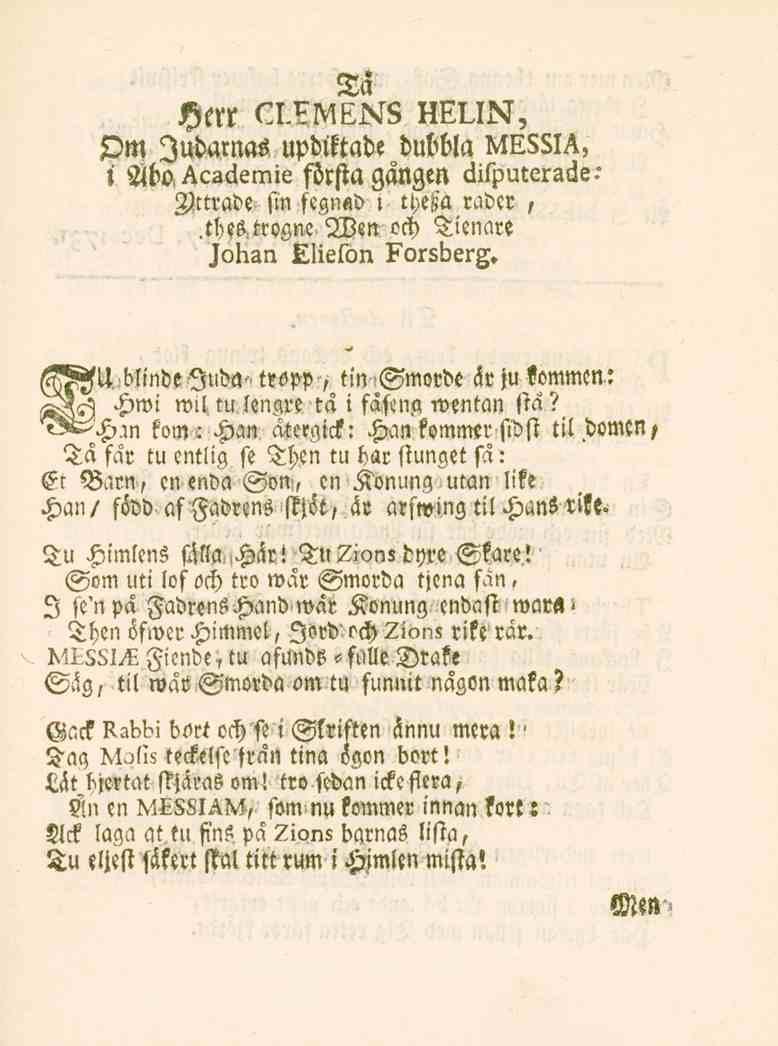 Tå
Herr CLEMENS HELIN,
Om Judarnas updiktade dubbla MESSIA,
i Åbo Academie första gången disputerade:
Yttrade sin fegnad i theßa rader,
thes trogne Wen och Tienare
Johan Elieson Forsberg.
TU blinde Juda-tropp, tin Smorde är ju kommen:
Hwi wil tu lengre tå i fåfeng wentan stå?
Han kom: Han återgick: Han kommer sidst til domen,
Tå får tu entlig se Then tu har stunget så:
Et Barn, en enda Son, en Konung utan like
Han/ född af Fadrens sköt, är arfwing til Hans rike.
Tu Himlens sälla Här! Tu Zions dyre Skare!
Som uti lof och tro wår Smorda tjena fån,
I se'n på Fadrens Hand wår Konung endast wara
Then öfwer Himmel, Jord och Zions rike rår.
MESSIÆ Fiende, tu afunds-fulle Drake
Säg, til wår Smorda om tu funnit någon maka?
Gack Rabbi bort och se i Skriften ännu mera!
Tag Mosis teckelse från tina ögon bort!
Låt hjertat skjäras om! tro sedan icke flera,
Än en MESSIAM, som nu kommer innan kort:
Ack laga at tu fins på Zions barnas lista,
Tu eljest säkert skal titt rum i Himlen mista!
Men